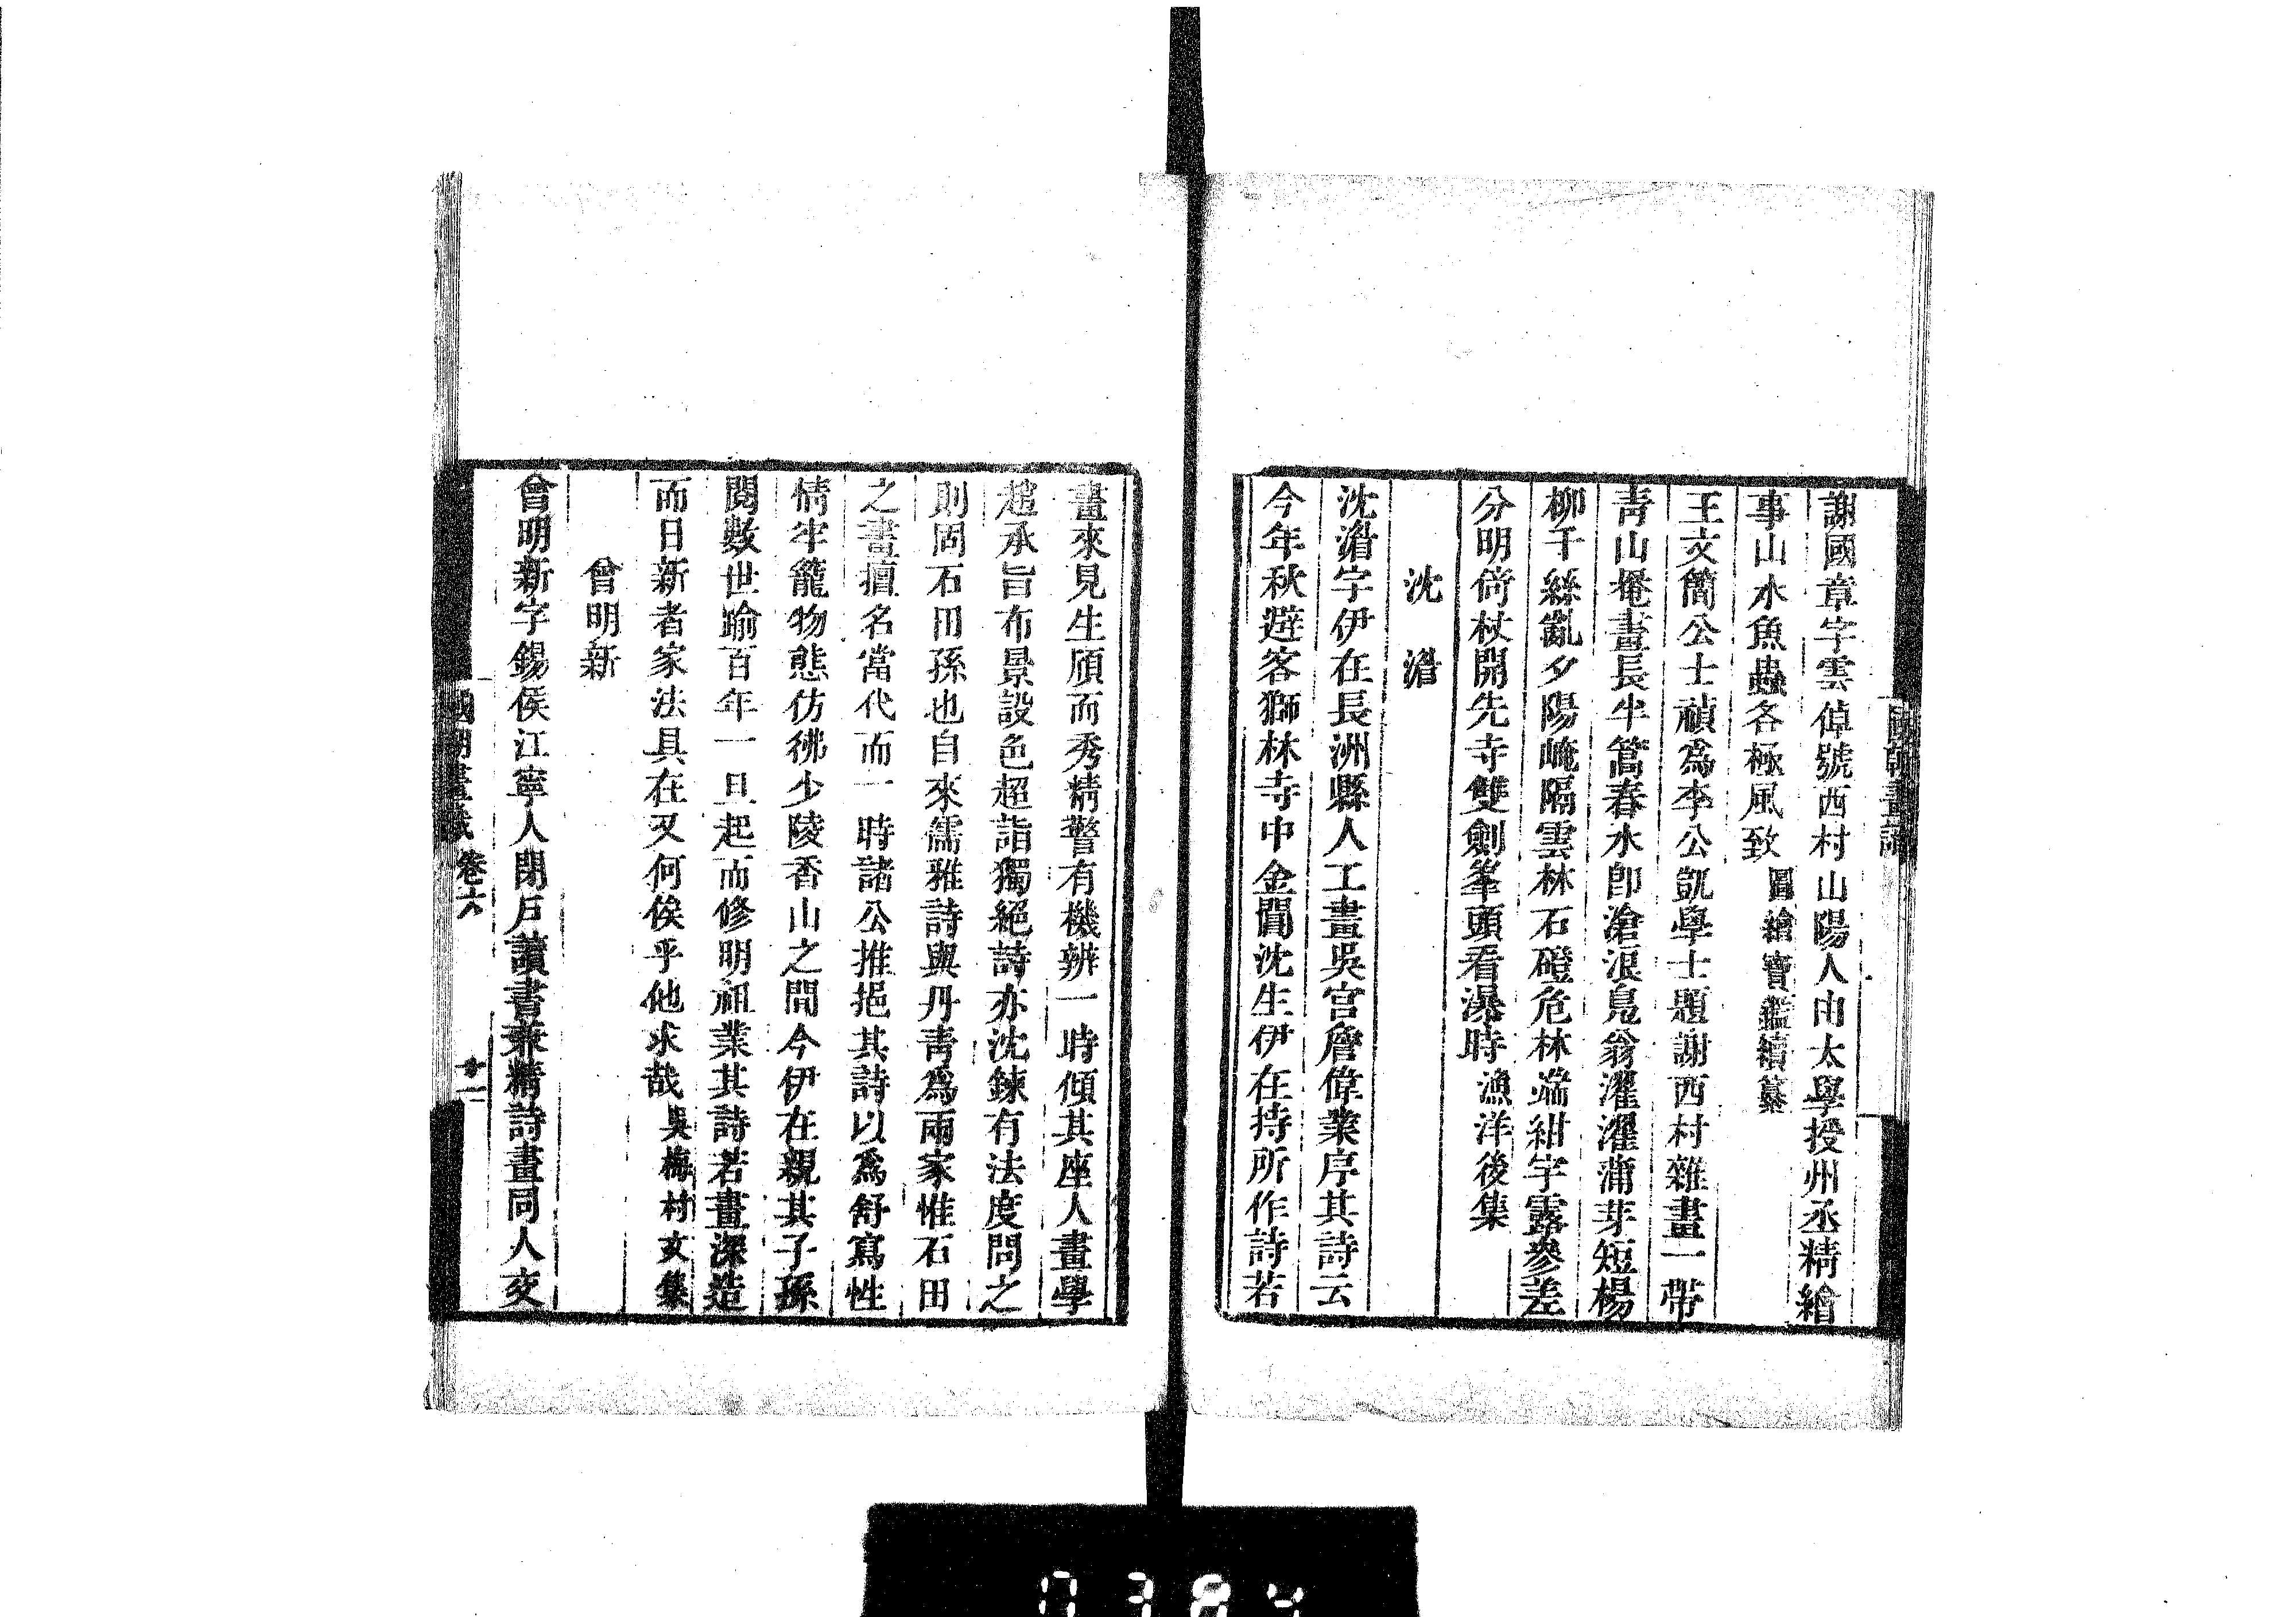 謝國章字雲倬號西村山陽人由太學授州丞精繪
事山水魚蟲各極風致圖繪寶鑑續纂
王文簡公士禎爲李公凱學士題謝西村雜畫一帶
青山罨畫長半篙春水卽滄浪鳧翁濯濯蒲芽短楊
柳千絲亂夕陽崦隔雲林石磴危林端紺宇露參差
分明倚杖開先寺雙劍峯頭看瀑時漁洋後集
沈㵾
沈㵾字伊在長洲縣人工畫吳宫詹偉業序其詩云
今年秋避客獅林寺中金閶沈生伊在持所作詩若
畫來見生頎而秀精警有機辨一時傾其座人畫學
趙承旨布景設色超詣獨絕詩亦沈鍊有法度問之
則固石田孫也自來儒雅詩與丹青爲兩家惟石田
之畫擅名當代而一時諸公推挹其詩以爲舒寫性
情牢籠物態彷彿少陵香山之間今伊在親其子孫
閱數世踰百年一旦起而修明祖業其詩若畫深造
而日新者家法具在又何俟乎他求哉吳梅村文集
曾明新
曾明新字錫侯江寧人閉戶讀書兼精詩畫同人交
國朝畫識 卷六 十一
國朝畫識
0384